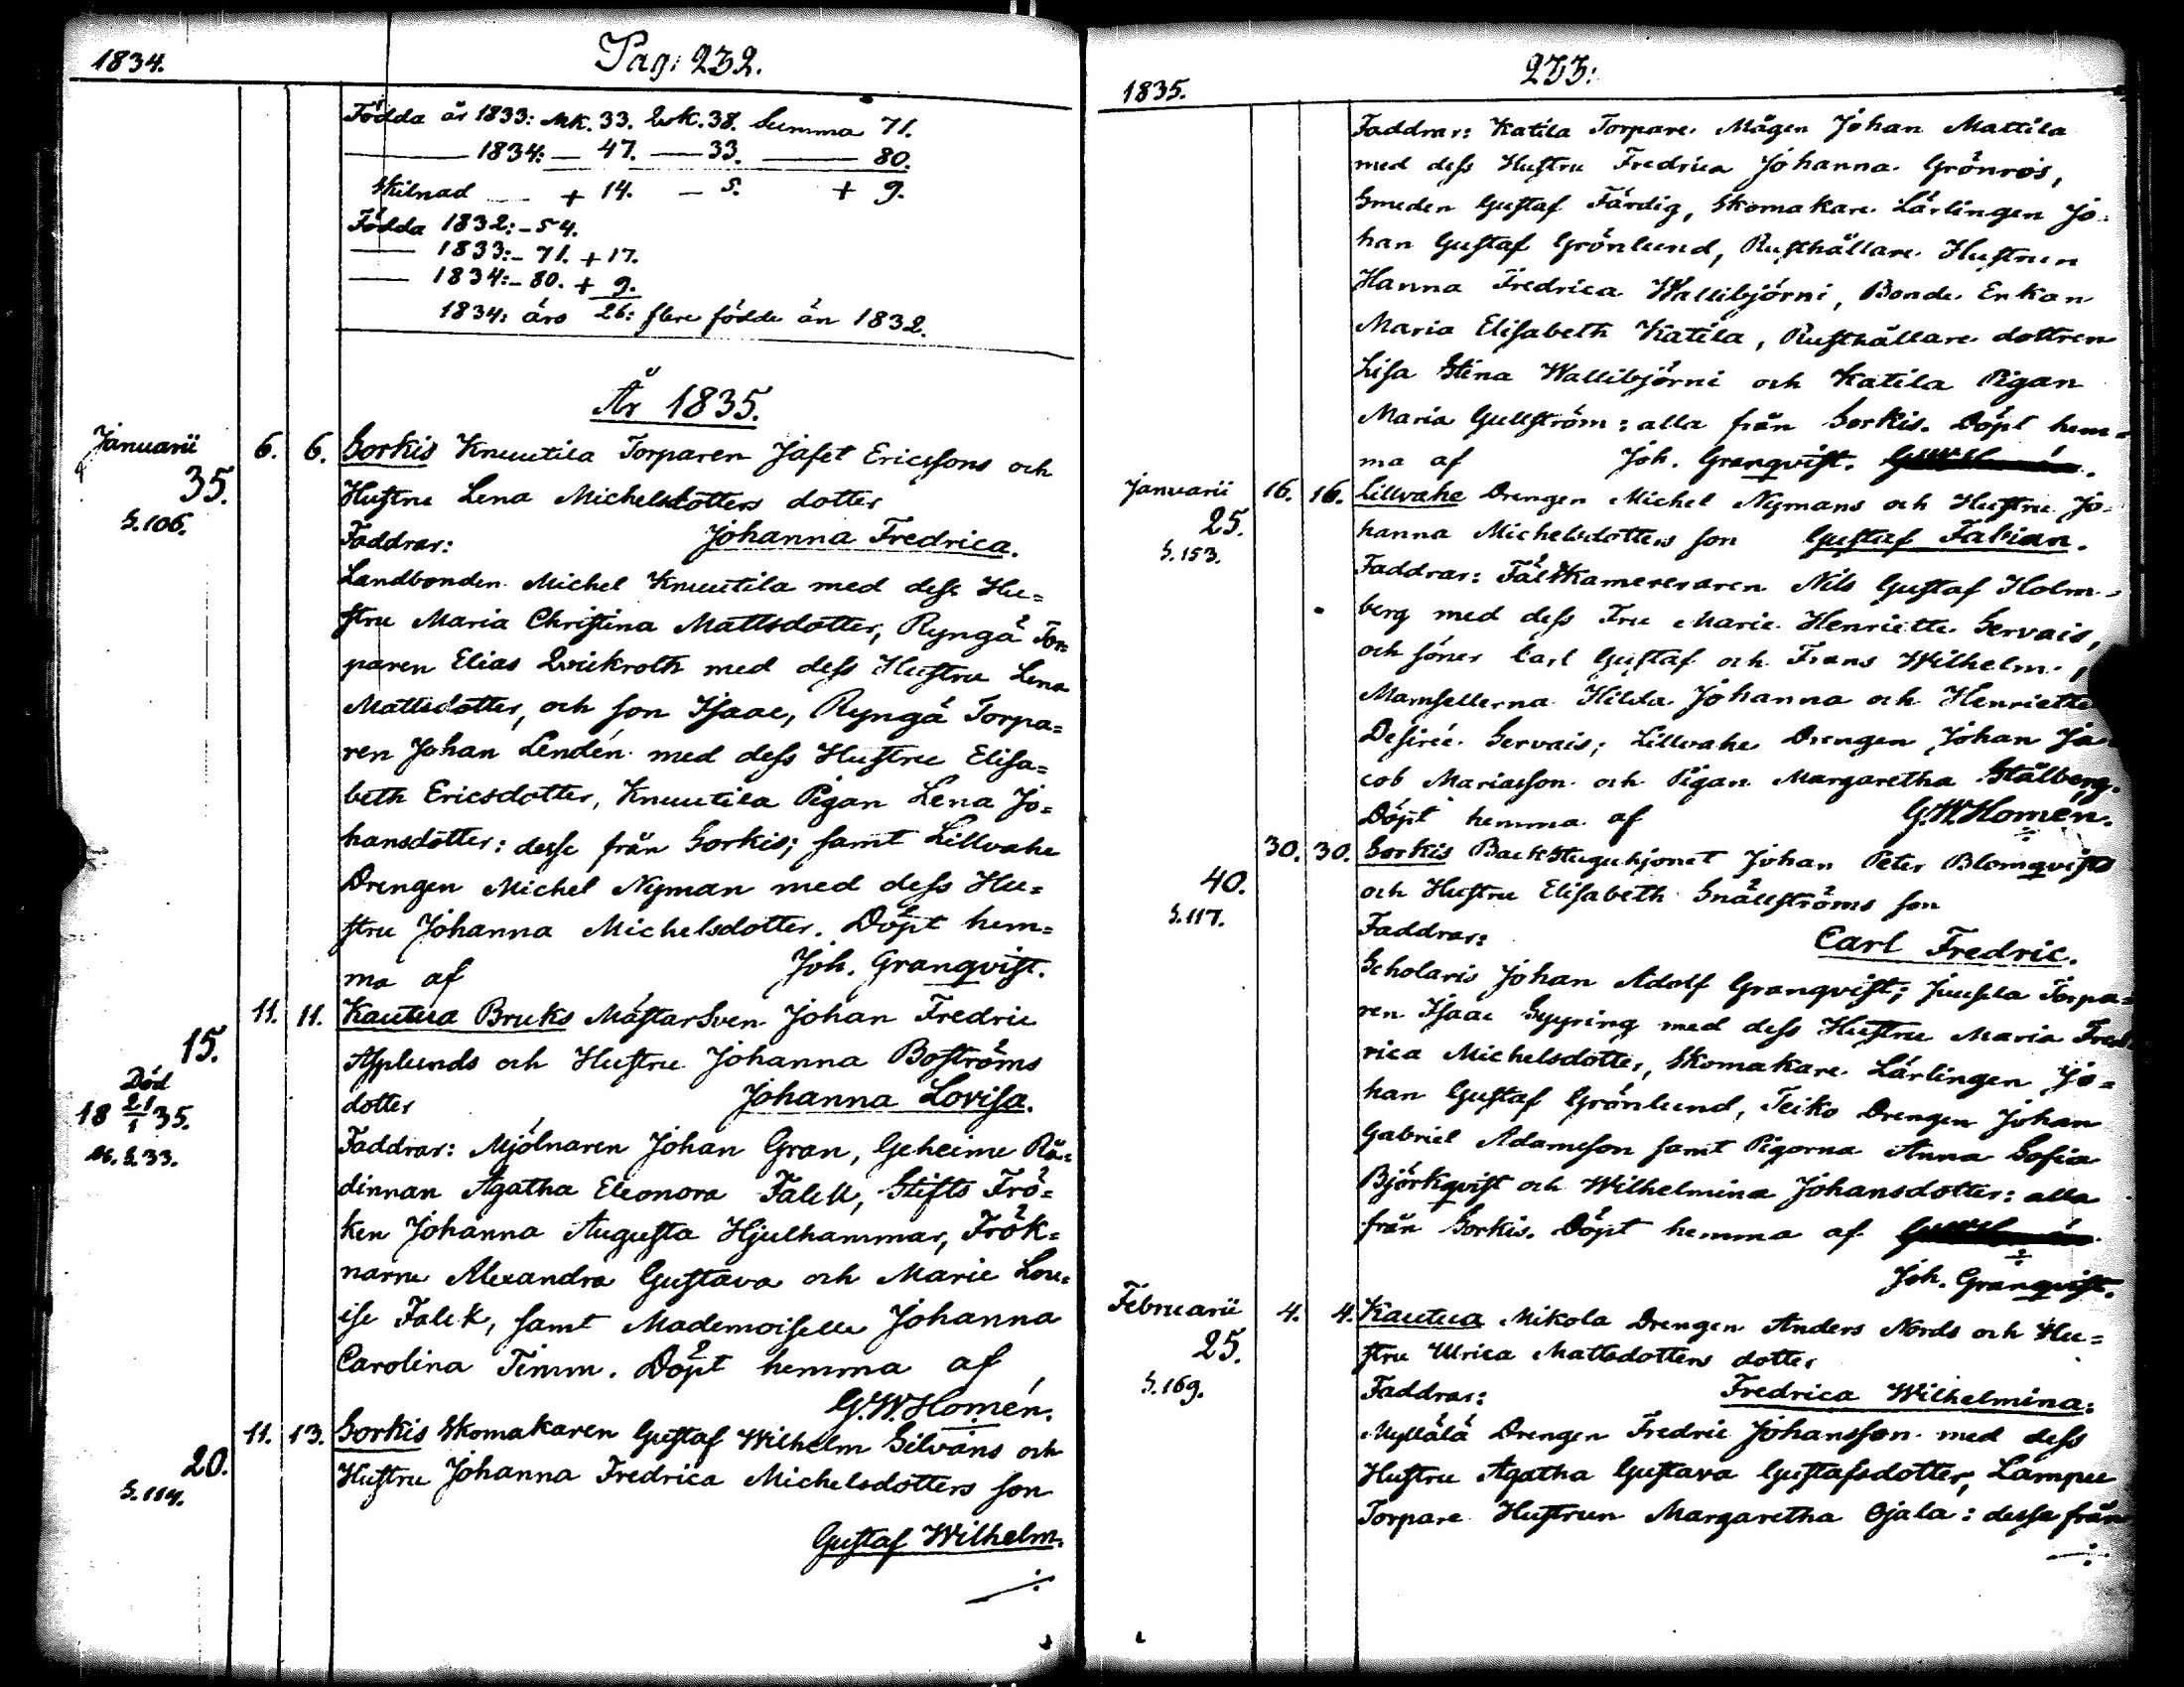 1834.
Pag: 232.
Födda år 1833: Mk. 33. Qvk. 38. Summa 71.
1834: — 47. — 33. — 80.
Skilnad — + 14. — 5. + 9.
Födda 1832: - 54.
— 1833: - 71. + 17.
— 1834: - 80. + 9.
1834: års 26: flere födde än 1832.
År 1835.
Januarii 6. 6. Sorkis Knuutila Torparen Jafet Ericssons och
35. Hustru Lena Michelsdotters dotter
S. 106. Faddrar: Johanna Fredrica.
Landbonden Michel Knuutila med dess Hu=
stru Maria Christina Mattsdotter, Ryngä Tor=
paren Elias Qvickroth med dess Hustru Lena
Mattsdotter, och son Isaac, Ryngä Torpa=
ren Johan Lendén med dess Hustru Elisa=
beth Ericsdotter, Knuutila Pigan Lena Jo=
hansdotter: desse från Sorkis; samt Lillvahe
Drengen Michel Nyman med dess Hu=
stru Johanna Michelsdotter. Döpt hem=
ma af Joh. Granqvist.
11. 11. Kautua Bruks MästarSven Johan Fredric
15. Asplunds och Hustru Johanna Boströms
Död
18 21/1 35. dotter Johanna Lovisa.
M. S. 33. Faddrar: Mjölnaren Johan Gran, Geheime Rå=
dinnan Agatha Eleonora Falck, Stifts Frö=
ken Johanna Augusta Hjulhammar, Frök=
narne Alexandra Gustava och Marie Lou=
ise Falck, samt Mademoiselle Johanna
Carolina Timm. Döpt hemma af
G. W. Homén.
11. 13. Sorkis Skomakaren Gustaf Wilhelm Silvans och
20. Hustru Johanna Fredrica Michelsdotters son
S. 114.
Gustaf Wilhelm.
÷
233:
1835.
Faddrar: Katila Torpare Mågen Johan Mattila
med dess Hustru Fredrica Johanna Grönros,
Smeden Gustaf Färdig, Skomakare Lärlingen Jo=
han Gustaf Grönlund, Rusthållare Hustrun
Hanna Fredrica Wallibjörni, Bonde Enkan
Maria Elisabeth Katila, Rusthållare dottren
Lisa Stina Wallibjörni och Katila Pigan
Maria Gullström: alla från Sorkis. Döpt hem=
ma af Joh. Granqvist.
Januarii 16. 16. Lillvahe Drengen Michel Nymans och Hustru Jo=
25. hanna Michelsdotters son Gustaf Fabian.
S. 153. Faddrar: Fältkamereraren Nils Gustaf Holm=
berg med dess Fru Marie Henriette Gervais,
och söner Carl Gustaf och Frans Wilhelm,
Mamsellerna Hilda Johanna och Henriette
Desirée Gervais; Lillvahe Drengen Johan Ja=
cob Mariasson och Pigan Margaretha Stålberg.
Döpt hemma af G. W. Homén.
30. 30. Sorkis Backstuguhjonet Johan Peter Blomqvists
40. och Hustru Elisabeth Snällströms son
S. 117. Faddrar: Carl Fredric.
Scholaris Johan Adolf Granqvist; Juusela Torpa=
ren Isaac Syyring med dess Hustru Maria Fred=
rica Michelsdotter, Skomakare Lärlingen Jo=
han Gustaf Grönlund, Teiko Drengen Johan
Gabriel Adamsson samt Pigorna Anna Sofia
Björkqvist och Wilhelmina Johansdotter: alla
från Sorkis. Döpt hemma af
÷
Joh. Granqvist.
Februarii 4. 4. Kautua Mikola Drengen Anders Nords och Hu=
25. stru Ulrica Mattsdotters dotter
S. 169. Faddrar: Fredrica Wilhelmina:
Myllälä Drengen Fredric Johansson med dess
Hustru Agatha Gustava Gustafsdotter, Lampu
Torpare Hustrun Margaretha Ojala: desse från
÷